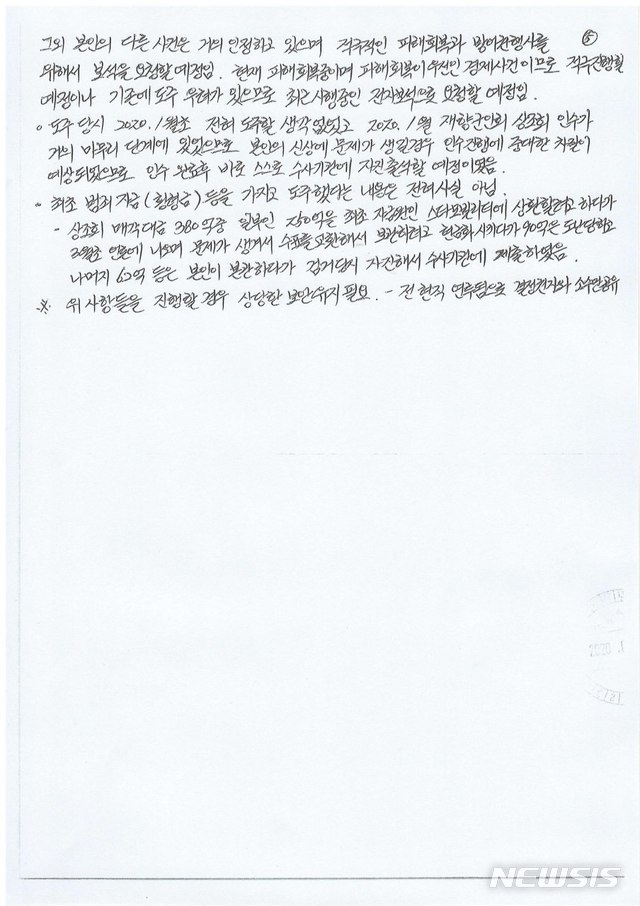 그외 본인의 다른 사건은 거의 인정하고 있으며 적극적인 피해회복과 방어권행사를 ⑤
위해서 보석을 요청할 예정임. 현재 피해회복중이며 피해회복이 우선인 경제사건이므로 적극진행할
예정이나 기존에 도주 우려가 있으므로 최근 시행중인 전자보석으로 요청할 예정임.
∘ 도주 당시 2020.1월초 전혀 도주할 생각 없었고 2020.1월 재향군인회 상조회 인수가
거의 마무리 단계에 있었으므로 본인의 신상에 문제가 생길경우 인수진행에 중대한 차질이
예상되었으므로 인수 완료후 바로 스스로 수사기관에 자진출석할 예정이였음.
∘ 최초 범죄자금(횡령금)등을 가지고 도주했다는 내용은 전혀사실 아님.
- 상조회 매각대금 380억중 일부인 250억을 최초 자금원인 스타모빌리티에 상환할려고 하다가
3월초 언론에 나오며 문제가 생겨서 수표를 교환해서 보관하려고 현금화시키다가 90억은 도난당하고
나머지 62억 등은 본인이 보관하다가 검거당시 자진해서 수사기관에 제출하였음.
※ 위 사항들을 진행할 경우 상당한 보안유지필요. - 전현직 연루됨으로 결정권자와 소수만공유
2020.
NEWSIS